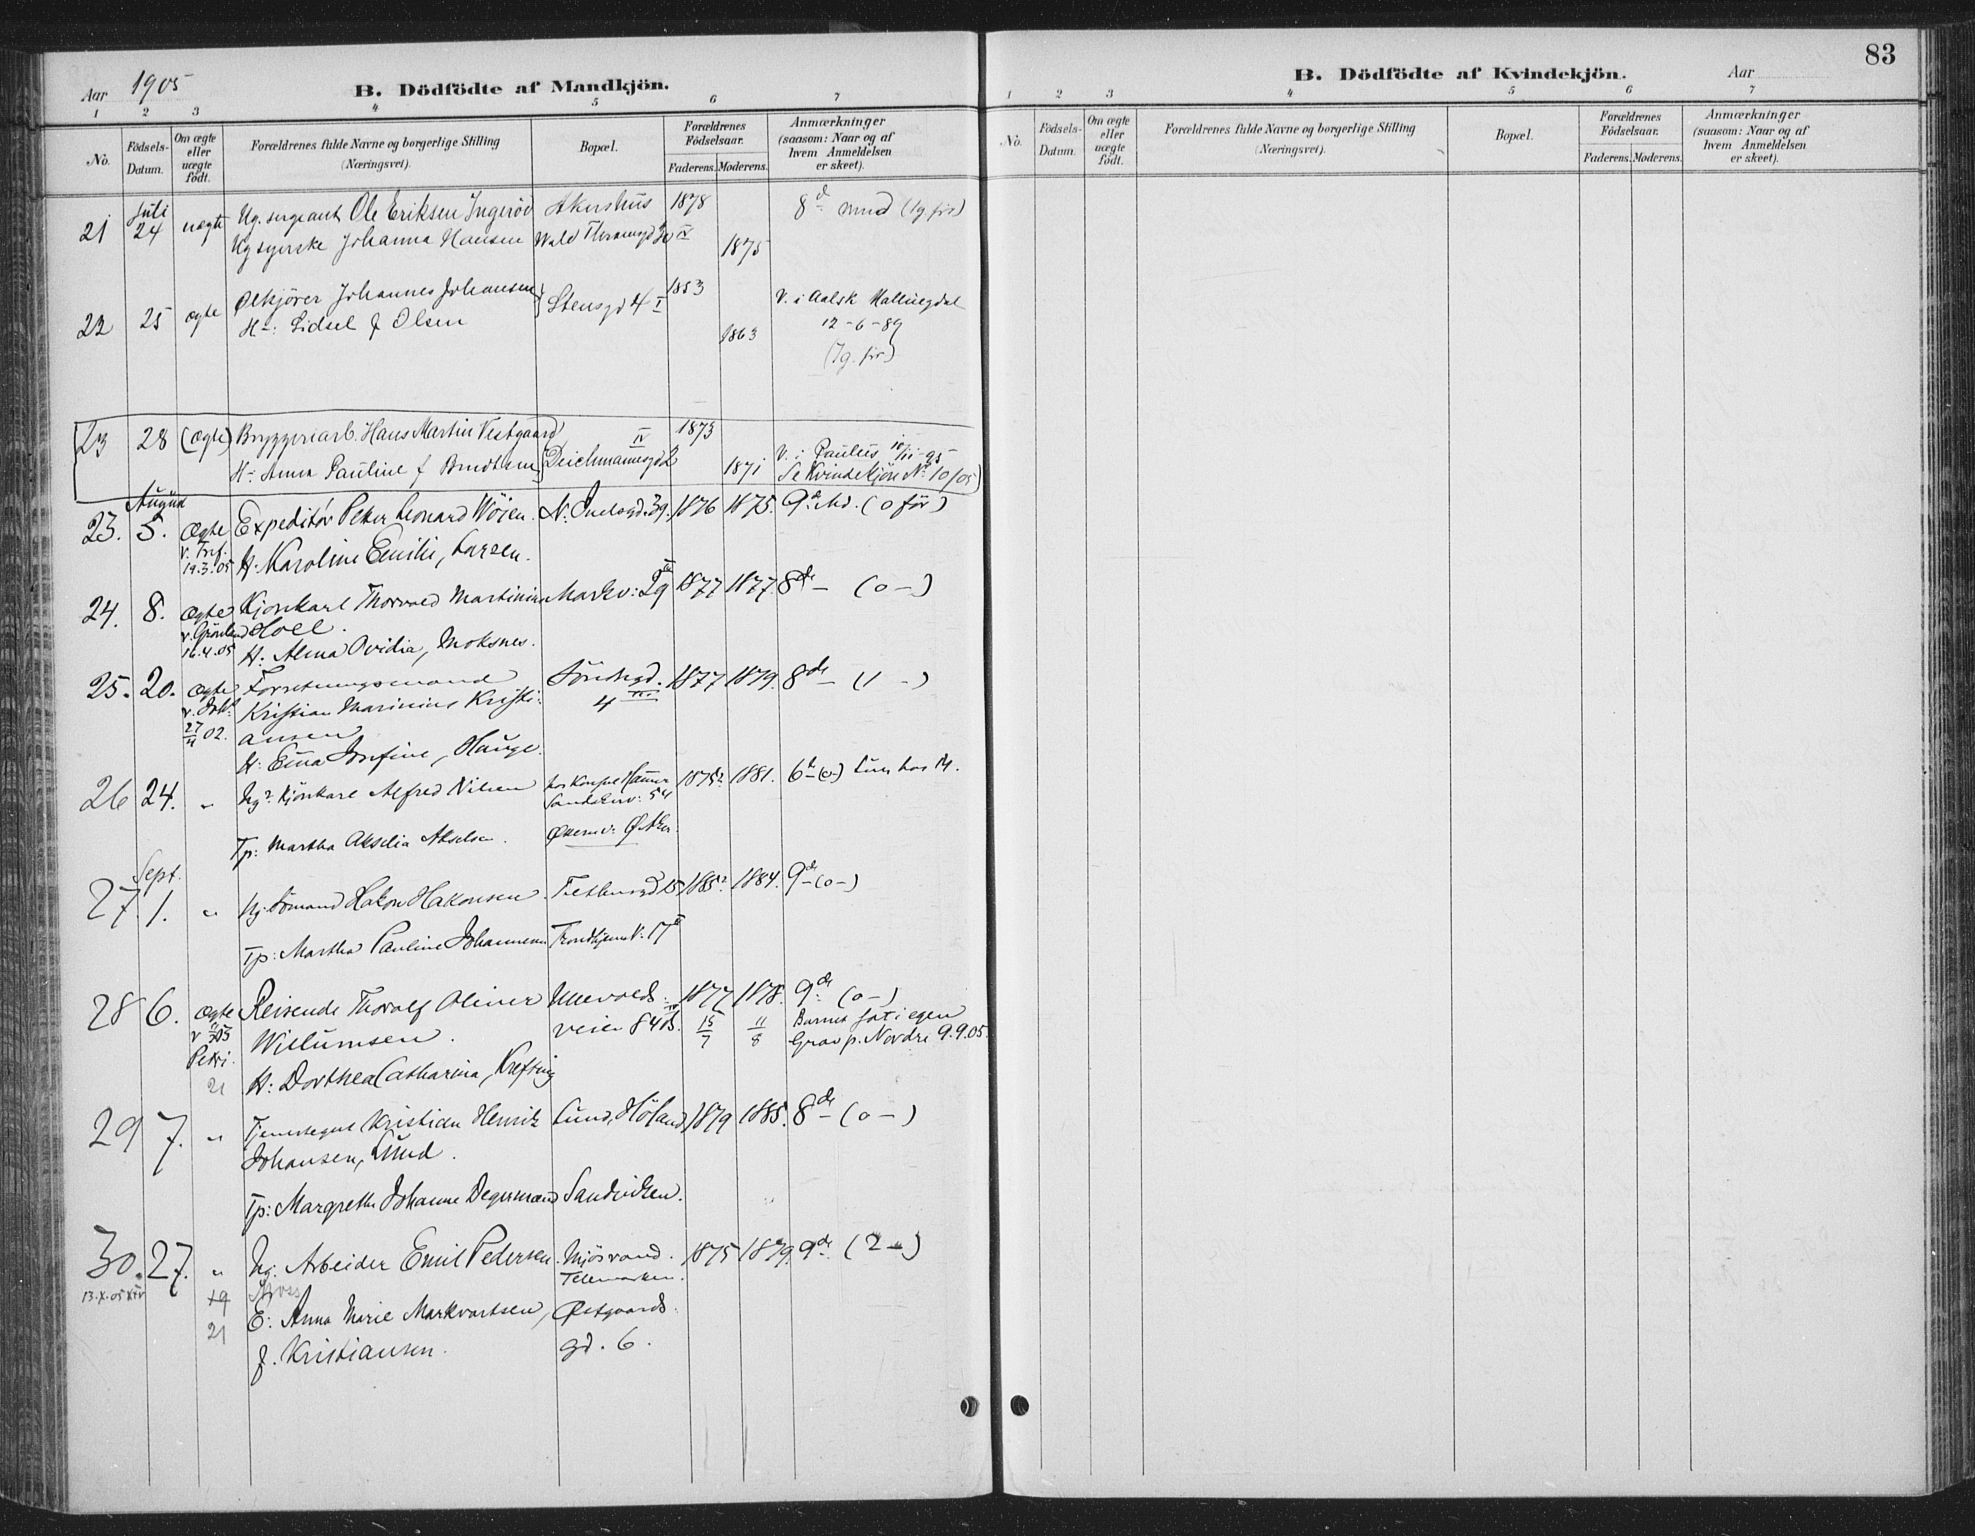 Aar 1905
B. Dödfödte af Mandkjön.
1 2 3 4 5 6 7
No.
Födsels-Datum.
Om ægte eller uægte födt.
Forældrenes fulde Navne og borgerlige Stilling (Næringsvei).
Bopæl.
Forældrenes Födselsaar.
Faderens. Moderens.
Anmærkninger (saasom: Naar og af hvem Anmeldelsen er skeet).
21 Juli 24 uægte Ug. sergeant Ole Eriksen Ingeröd Akershus 1878 8d mnd (1g. för)
Ug syerske Johanna Hansen Wald Thranesgd 30 IV 1875
22 25 ægte Ølkjörer Johannes Johansen Stensgd 4 I 1853 V. i Aalsk Hallingdal
H: Sidsel f Olsen 1863 12-6-89
(7g. för)
23 28 (ægte) Bryggeriarb. Hans Martin Vestgaard 1873
H: Anna Pauline f Deichmannsgd 2 IV 1871 V. i Paulus 10/11-95
Se Kvindekjön No 10/05
August
23. 5. Ægte Expeditör Peter Leonard Wöien. N: Juelsgd. 39. 1876 1875. 9de Md. (0 för)
v. Tref. 19.3.05 H: Karoline Emilie, Larsen.
24. 8. Ægte Kjörekarl Thorvald Martinius Markv: 29 1877 1877. 8de – (0 –)
v. Grönland Hoel.
16.4.05 H: Alma Ovidia, Moksnes.
25. 20. Ægte Forretningsmand Söndregd. 4 III 1877 1879. 8de – (1 –)
v. Joh. Kristian Marinius Kristi-
27/4 02. ansen
H: Emma Josefine, Hauge.
26 24. „ Ug. Kjörekarl Alfred Nilsen hos Konsul 54 1875. 1881. 6te – (0–)
Tp: Martha Akselia Akselsen. Økernv: Ø. Aker.
Sept.
27. 1. „ Ug. Sömand Hakon Hakonsen. 15 1885. 1884. 9de – (0 –)
Tp: Martha Pauline Johannesen Trondhjemsv: 17
28 6. Ægte Reisende Thoralf Oliver Ullevolds- 1877 1878. 9de (0 –)
Willumsen. veien 84 B. 15/7 11/8 Barnet sat i egen
Petri. Grav p. Nordre 9.9.05.
21 H: Dorthea Catharina, Krefting
29 7. „ Tjenestegut Kristian Henrik Lund, Höland, 1879 1885. 8de – (0 –)
Johansen, Lund.
Tp: Margrethe Johanne Degermand Sandviken.
30. 27. „ Ug. Arbeider Emil Pedersen. Mjösvand. 1875 1879. 9de (2 –)
13.X.05 19 Moss Telemarken.
E: Anna Marie Markvartsen, Østgaards-
21 f. Kristiansen. gd. 6.
83
B. Dödfödte af Kvindekjön.
Aar
1 2 3 4 5 6 7
No.
Födsels-Datum.
Om ægte eller uægte födt.
Forældrenes fulde Navne og borgerlige Stilling (Næringsvei).
Bopæl.
Forældrenes Födselsaar.
Faderens. Moderens.
Anmærkninger (saasom: Naar og af hvem Anmeldelsen er skeet).